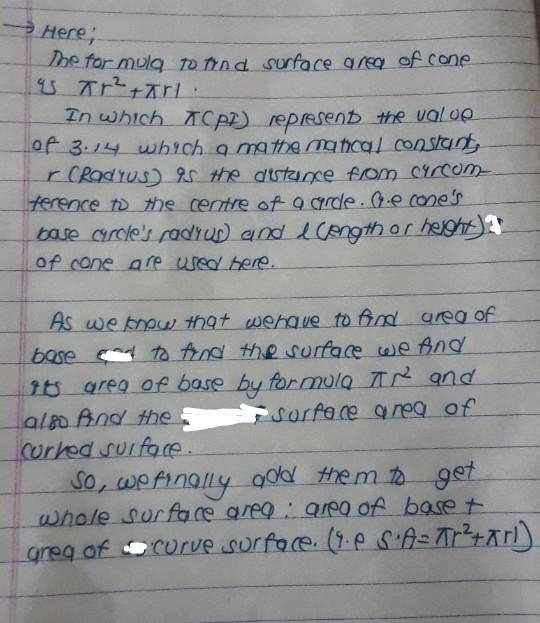 → Here;
The formula to find surface area of cone
is πr²+πrl.
In which π(PI) represent the value
of 3.14 which a mathematical constant,
r (Radius) is the distance from circum-
ference to the centre of a circle. (i.e cone's
base circle's radius) and l (length or height)
of cone are used here.
As we know that we have to find area of
base to find the surface we find
its area of base by formula πr² and
also find the surface area of
curved surface.
So, we finally add them to get
whole surface area: area of base +
area of curve surface. (i.e S.A=πr²+πrl)